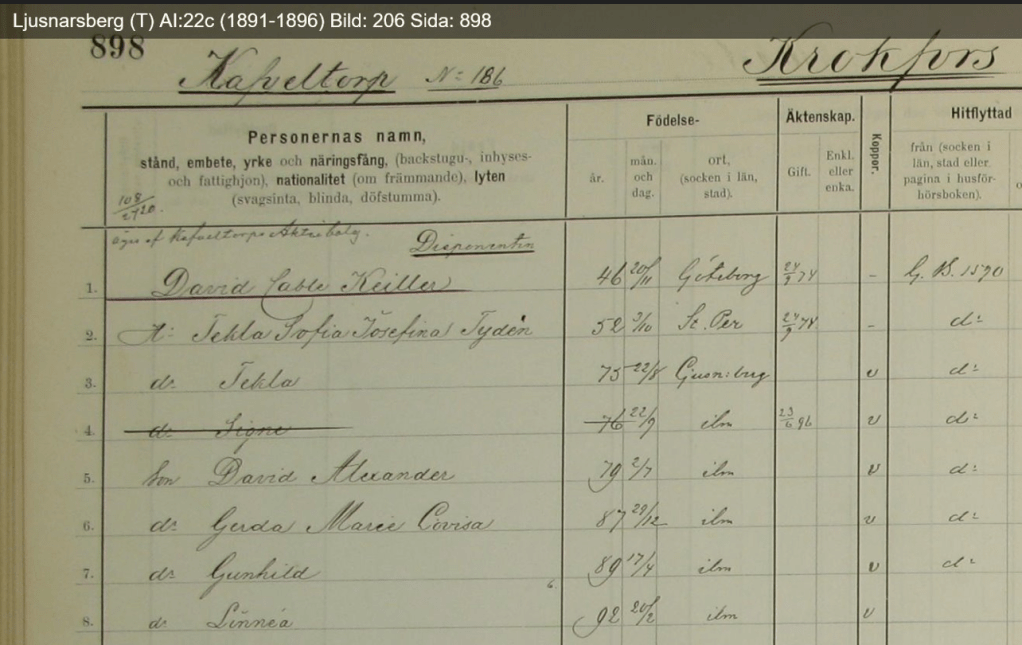 Ljusnarsberg (T) AI:22c (1891-1896) Bild: 206 Sida: 898
898
Kafveltorp No: 186
Krokfors
Personernas namn,
stånd, embete, yrke och näringsfång, (backstugu-, inhyses-
och fattighjon), nationalitet (om främmande), lyten
(svagsinta, blinda, döfstumma).
Födelse-
år.
mån. och dag.
ort, (socken i län, stad).
Äktenskap.
Gift.
Enkl. eller enka.
Koppor.
Hitflyttad
från (socken i län, stad eller pagina i husför-hörsboken).
108/2720.
äges af Kafveltorps Aktiebolag.
Disponenten
1. David Cable Keiller 46 20/11 Göteborg 24/9 74 - G. B. 1590
2. H: Tekla Sofia Josefina Tydén 52 3/10 St. Per 24/9 74 - d:
3. dr Tekla 75 22/8 Ljusn:berg v d:
4. dr Signe 76 22/9 ibm 23/6 96 v d:
5. Son David Alexander 79 2/7 ibm v d:
6. dr Gerda Marie Lovisa 87 29/12 ibm v d:
7. dr Gunhild 89 17/4 ibm v d:
8. dr Linnéa 92 20/2 ibm v